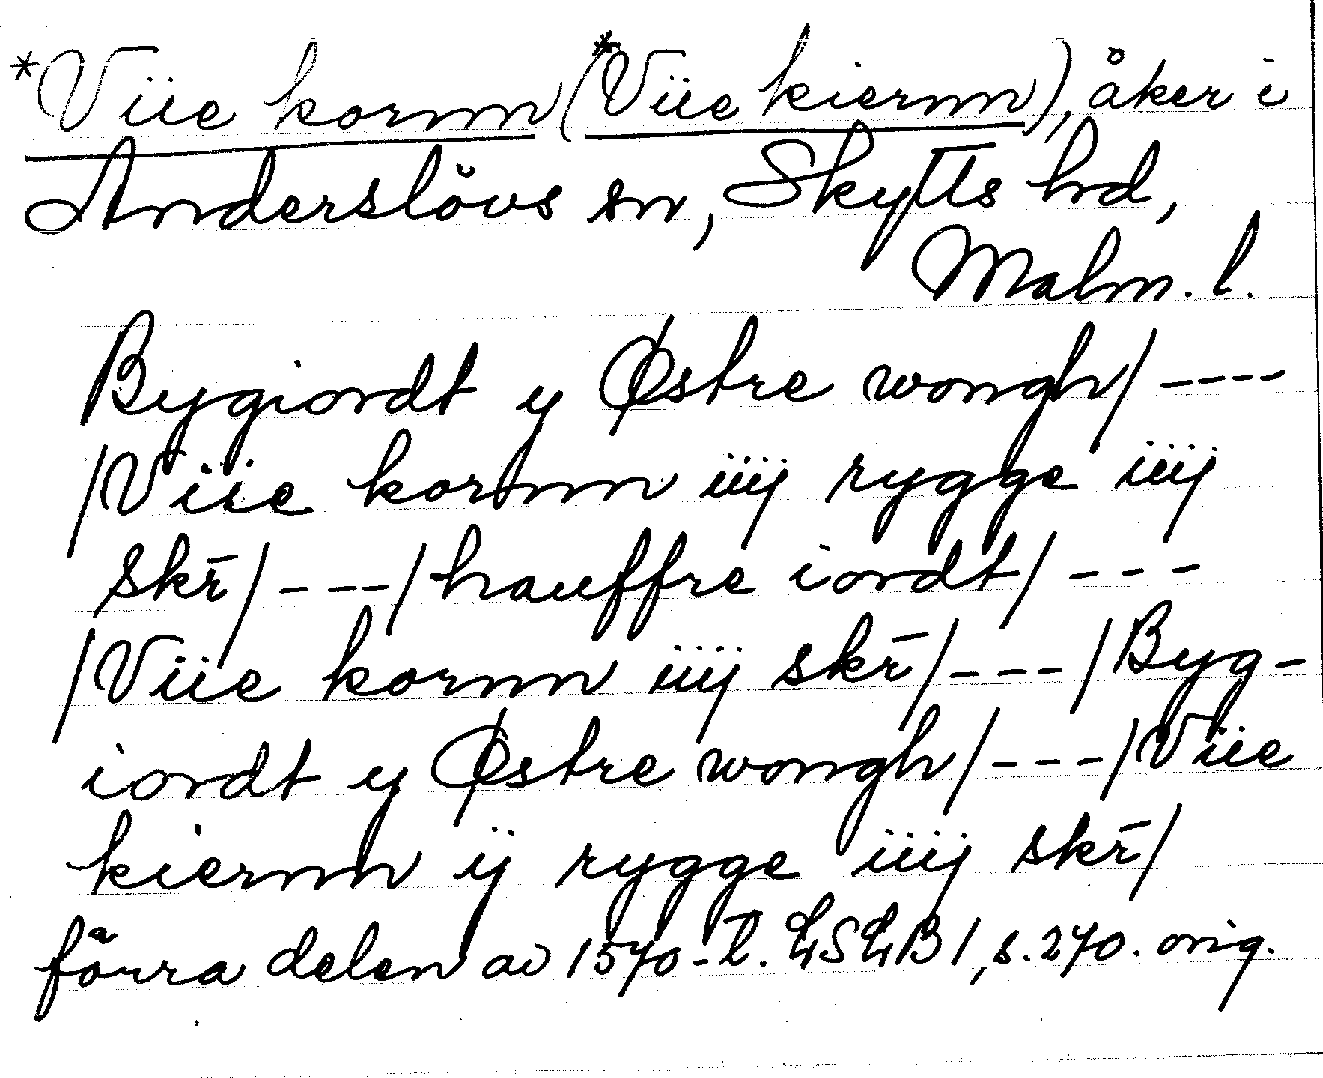 *Viie kornn (*Viie kiernn), åker i
Anderslövs sn, Skytts hd,
Malm. l.
Bygiordt y Østre wongh/ ----
/Viie kornn iiij rygge iiij
skr̄/ ---/ hauffre iordt/ ---
/Viie kornn iiij skr̄/ ---/ Byg-
iordt y Østre wongh/ ---/ Viie
kiernn ij rygge iiij skr̄/
förra delen av 1570-t. LSLB 1, s. 270. orig.